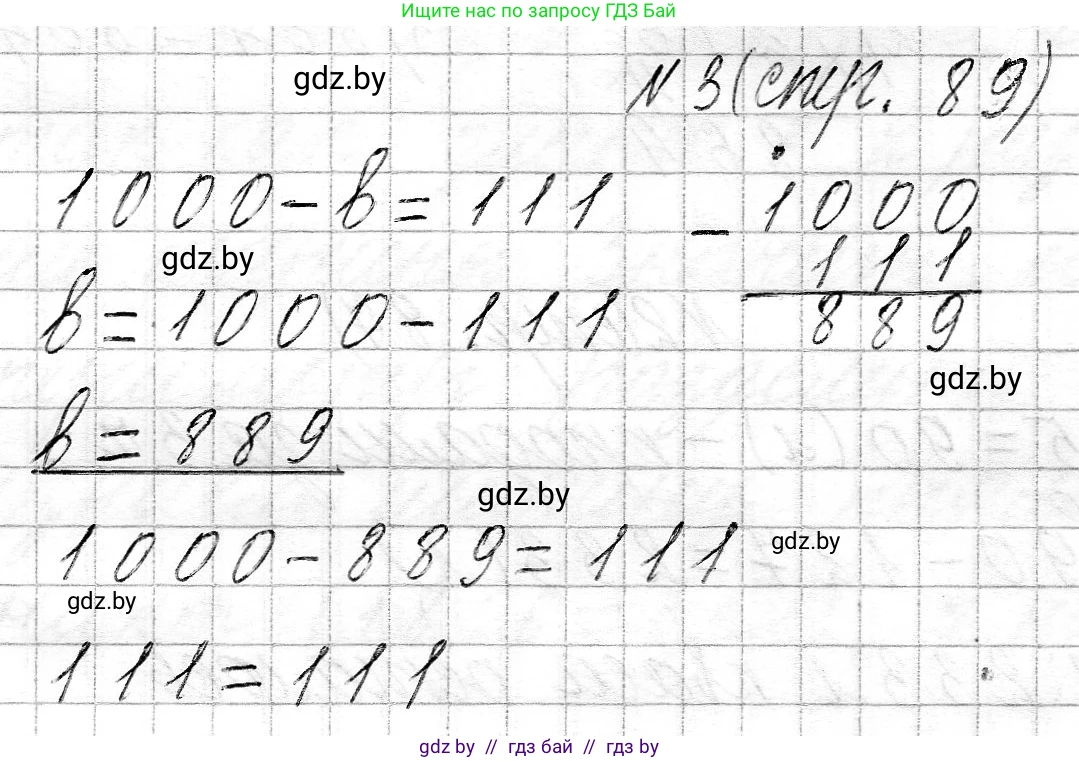 Ищите нас по запросу ГДЗ Бай
gdz.by
N 3 (стр. 89)
1000 - в = 111
- 1000
111
889
gdz.by
в = 1000 - 111
gdz.by
в = 889
gdz.by
1000 - 889 = 111
gdz.by
gdz.by
111 = 111
gdz by // гдз бай // гдз by